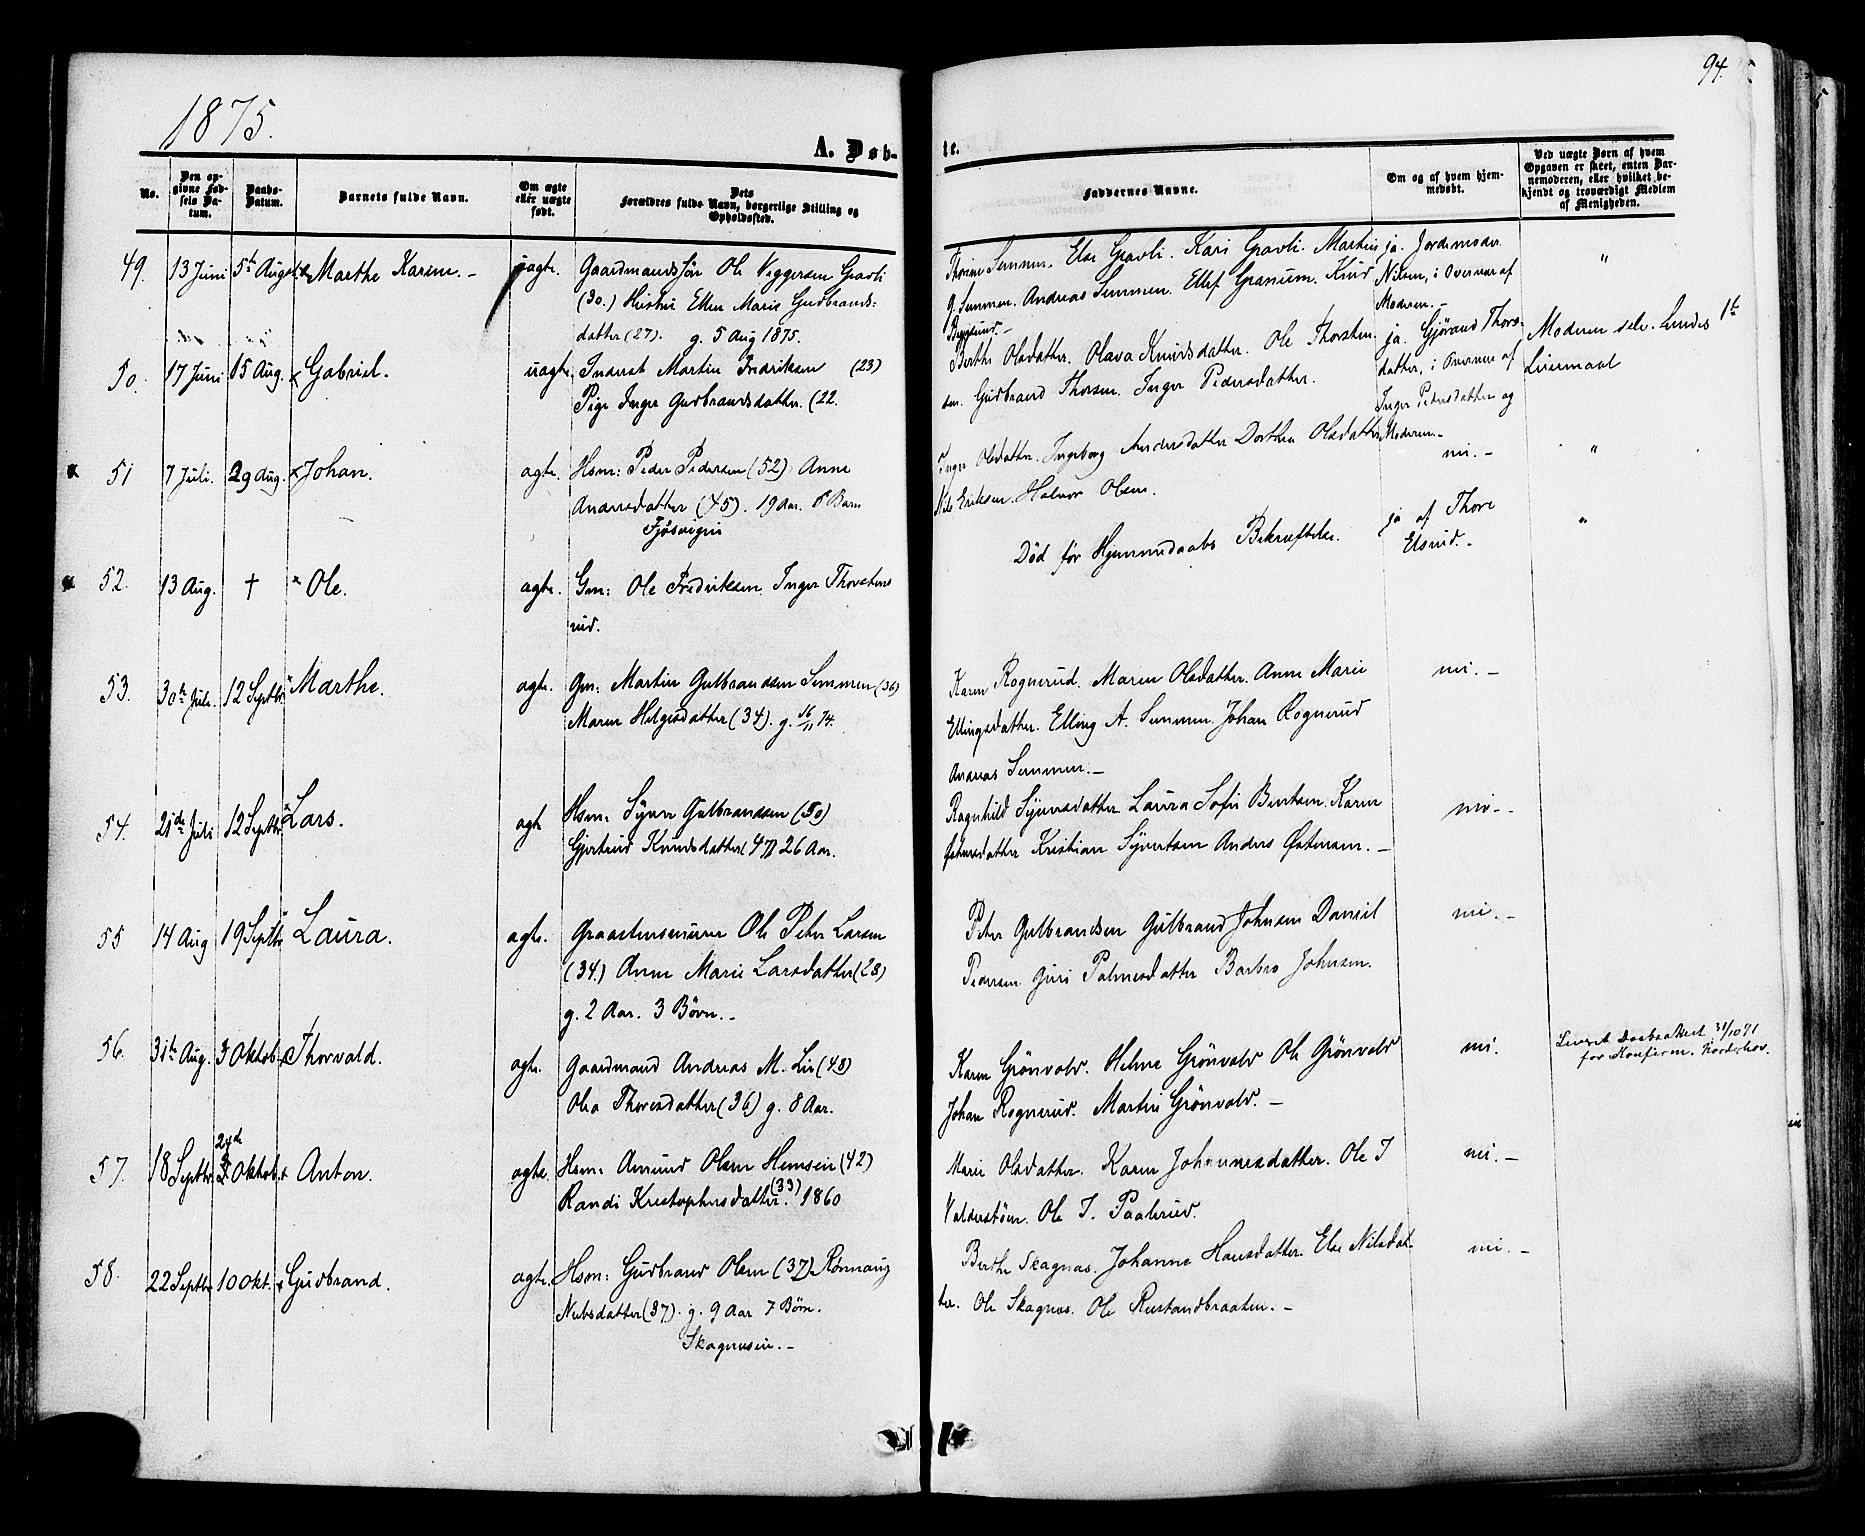 1875.
94.
A. Døb-
te.
No.
Den op-
givne Fød-
sels Da-
tum.
Daabs-
Datum.
Barnets fulde Navn.
Om ægte
eller uægte
født.
Dets
Forældres fulde Navn, borgerlige Stilling og
Opholdssted.
Faddernes Navne.
Om og af hvem hjem-
medøbt.
Ved uægte Børn af hvem
Opgaven er skeet, enten Bar-
nemoderen, eller hvilket be-
kjendt og troværdigt Medlem
af Menigheden.
49.
13 Juni
5te August
Marthe Karine. -
uægte.
Gaardmandssøn Ole Viggersen Gravli
(30.) Hustru Ellen Marie Gudbrands-
datter (27). g. 5 Aug 1875.
Semmen. Else Gravli. Kari Gravli. Martin
G. Semmen. Andreas Semmen. Ellef Granum. Knud
ja. Jordemoder
Nilsen, i Overvær af
Moderen. -
"
50.
17 Juni
15 Aug.
x Gabriel.
uægte.
Inderst Martin Fredriksen (23)
Pige Inger Gudbrandsdatter. (22.
Berthe Olsdatter. Olava Knudsdatter. Ole Thorsten-
sen. Gudbrand Thorsen. Inger Pedersdatter.
ja. Gjørand Thors-
datter, i Overvær af
Inger Pedersdatter og
Moderen. -
Moderen selv. Lundes 1ste
Leiermaal
51
7 Juli.
29 Aug.
x Johan.
ægte.
Hsm: Peder Pedersen (52) Anne
Andersdatter (45). 19 Aar. 8 Børn
Inger Olsdatter. Ingeborg Andersdatter Dorthea Olsdatter
Nils Eriksen. Halvor Olsen.
nei. -
"
52.
13 Aug.
†
x Ole.
ægte.
Gm: Ole Fredriksen Inger Thorstens
rud.
Død før Hjemmedaabs Bekræftelse.
ja af Thore
Elsrud. -
"
53.
30te Juli.
12 Septbr
Marthe.
ægte.
Gm: Martin Gulbrandsen Semmen (36)
Maren Helgesdatter (34). g. 16/11 74.
Karen Rognerud. Maren Olsdatter. Anne Marie
Ellingsdatter. Elling A. Semmen. Johan Rognerud
Andreas Semmen. -
nei. -
54.
21de Juli
12 Septbr
Lars.
ægte
Hsm: Syver Gulbrandsen (50)
Gjertrud Knudsdatter (47) 26 Aar.
Ragnhild Syversdatter. Laura Sofie Berntsen. Karen
Østensdatter Kristian Syvertsen Anders Østensen. -
nei. -
55
14 Aug
19 Septbr
Laura.
ægte.
Graastensmurer Ole Peter Larsen
(34.) Anne Marie Larsdatter (28)
g. 2 Aar. 3 Børn. -
Peter Gulbrandsen Gulbrand Johnsen Daniel
Pedersen Guri Palmesdatter Barbro Johnsen.
nei. -
56.
31te Aug.
3 Oktob.
Thorvald.
ægte.
Gaardmand Andreas M. Lie (43)
Olea Thoresdatter (36) g. 8 Aar.
Karen Grønvold. Helene Grønvold Ole Grønvold
Johan Rognerud. Martin Grønvold. -
nei.
Leveret Daabsattest 31/10 91
for Konfirm. Norderhov.
57.
18 Septbr
24de
Oktob.
x Anton.
ægte.
Hsm: Amund Olsen Hemsein (42)
Randi Kristophersdatter. (33) 1860
Marie Olsdatter. Karen Johannesdatter. Ole I
Ole I. Paalerud.
nei. -
58.
22 Septbr
10 Okt.
x Gudbrand.
ægte.
Hsm: Gudbrand Olsen (37). Rønnaug
Nubsdatter (37). g. 9 Aar 7 Børn.
Skagnesein. -
Berthe Skagnæs. Johanne Hansdatter. Else Nilsdat-
ter. Ole Skagnæs. Ole Rustandbraaten. -
nei. -